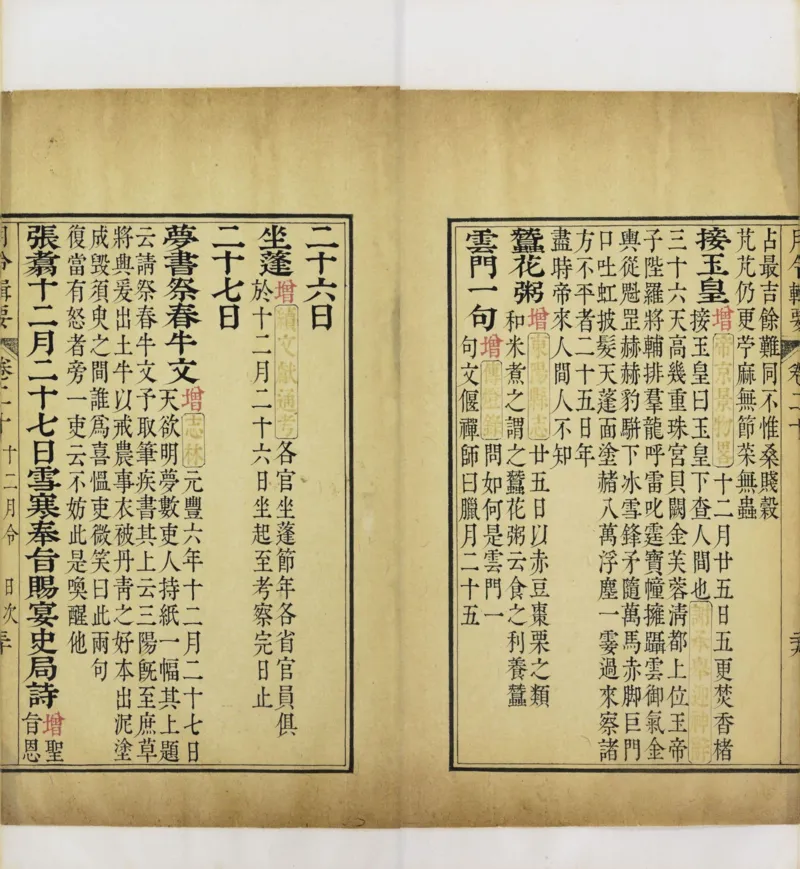 卷二十
占最吉餘難同不惟桑賤穀
芃芃仍更苧麻無節菜無蟲
接玉皇 增 帝京景物畧 十二月廿五日五更焚香楮
接玉皇曰玉皇下查人間也
三十六天高幾重珠宮貝闕金芙蓉清都上位王帝
子陛羅將輔排羣龍呼雷叱霆寶幢擁躡雲御氣金
輿從魁罡赫赫豹騈下冰雪鋒矛隨萬馬赤脚巨門
口吐虹披髮天蓬面塗赭八萬浮塵一霎過來察諸
方不平者二十五日年
盡時帝來人間人不知
蠶花粥 增 廿五日以赤豆棗栗之類
和米煮之謂之蠶花粥云食之利養蠶
雲門一句 增 問如何是雲門一
句文偃禪師曰臘月二十五
二十六日
坐蓬 增 各官坐蓬節年各省官員俱
於十二月二十六日坐起至考察完日止
二十七日
夢書祭春牛文 增 志林 元豐六年十二月二十七日
天欲明夢數吏人持紙一幅其上題
云請祭春牛文予取筆疾書其上云三陽旣至庶草
將興爰出土牛以戒農事衣被丹青之好本出泥塗
成毀須臾之間誰爲喜慍吏微笑曰此兩句
復當有怒者旁一吏云不妨此是喚醒他
張翥十二月二十七日雪寒奉旨賜宴史局詩 增 聖
旨恩
月令輯要 卷二十 十二月令 日次